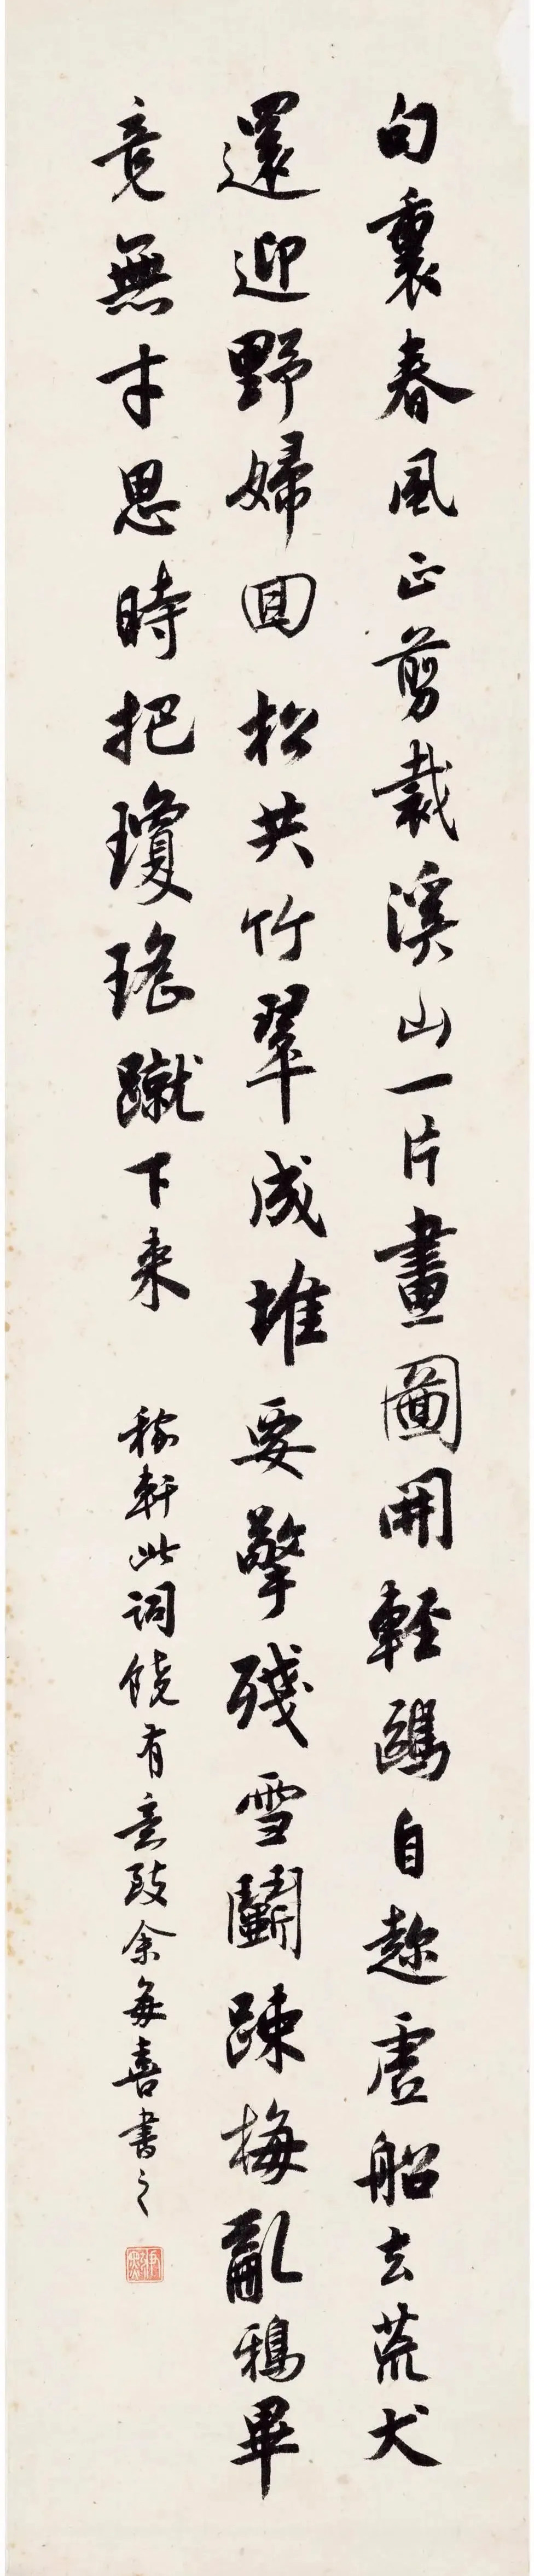 句裏春風正剪裁溪山一片畫圖開輕鷗自趂虛船去荒犬
還迎野婦回松共竹翠成堆要擎殘雪鬬踈梅亂鴉畢
竟無才思時把瓊瑤蹴下來
稼軒此詞饒有意致余每喜書之